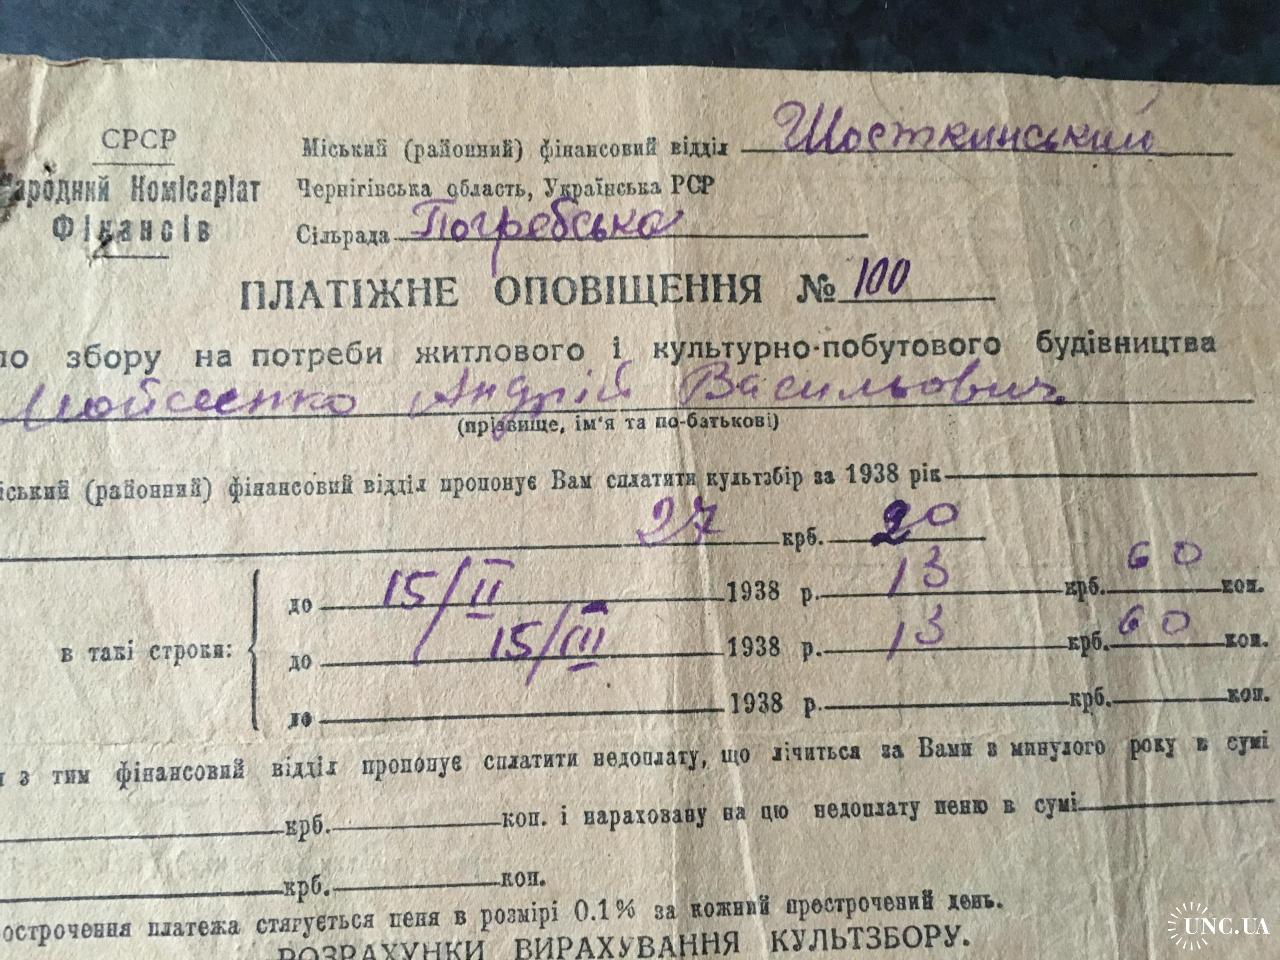 СРСР
Народний Комісаріат
Фінансів
Міський (районний) фінансовий відділ Шосткинський
Чернігівська область, Українська РСР
Сільрада Погребська
ПЛАТІЖНЕ ОПОВІЩЕННЯ № 100
по збору на потреби житлового і культурно-побутового будівництва
Мойсеенко Андрій Васильович
(прізвище, ім'я та по-батькові)
іський (районний) фінансовий відділ пропонує Вам сплатити культзбір за 1938 рік
27 крб. 20
в такі строки:
до 15/II 1938 р. 13 крб. 60 коп.
до 15/III 1938 р. 13 крб. 60 коп.
до 1938 р. крб. коп.
з тим фінансовий відділ пропонує сплатити недоплату, що лічиться за Вами з минулого року в сумі
крб. коп. і нараховану на цю недоплату пеню в сумі
крб. коп.
острочення платежа стягується пеня в розмірі 0.1% за кожний прострочений день.
РОЗРАХУНКИ ВИРАХУВАННЯ КУЛЬТЗБОРУ.
UNC.UA